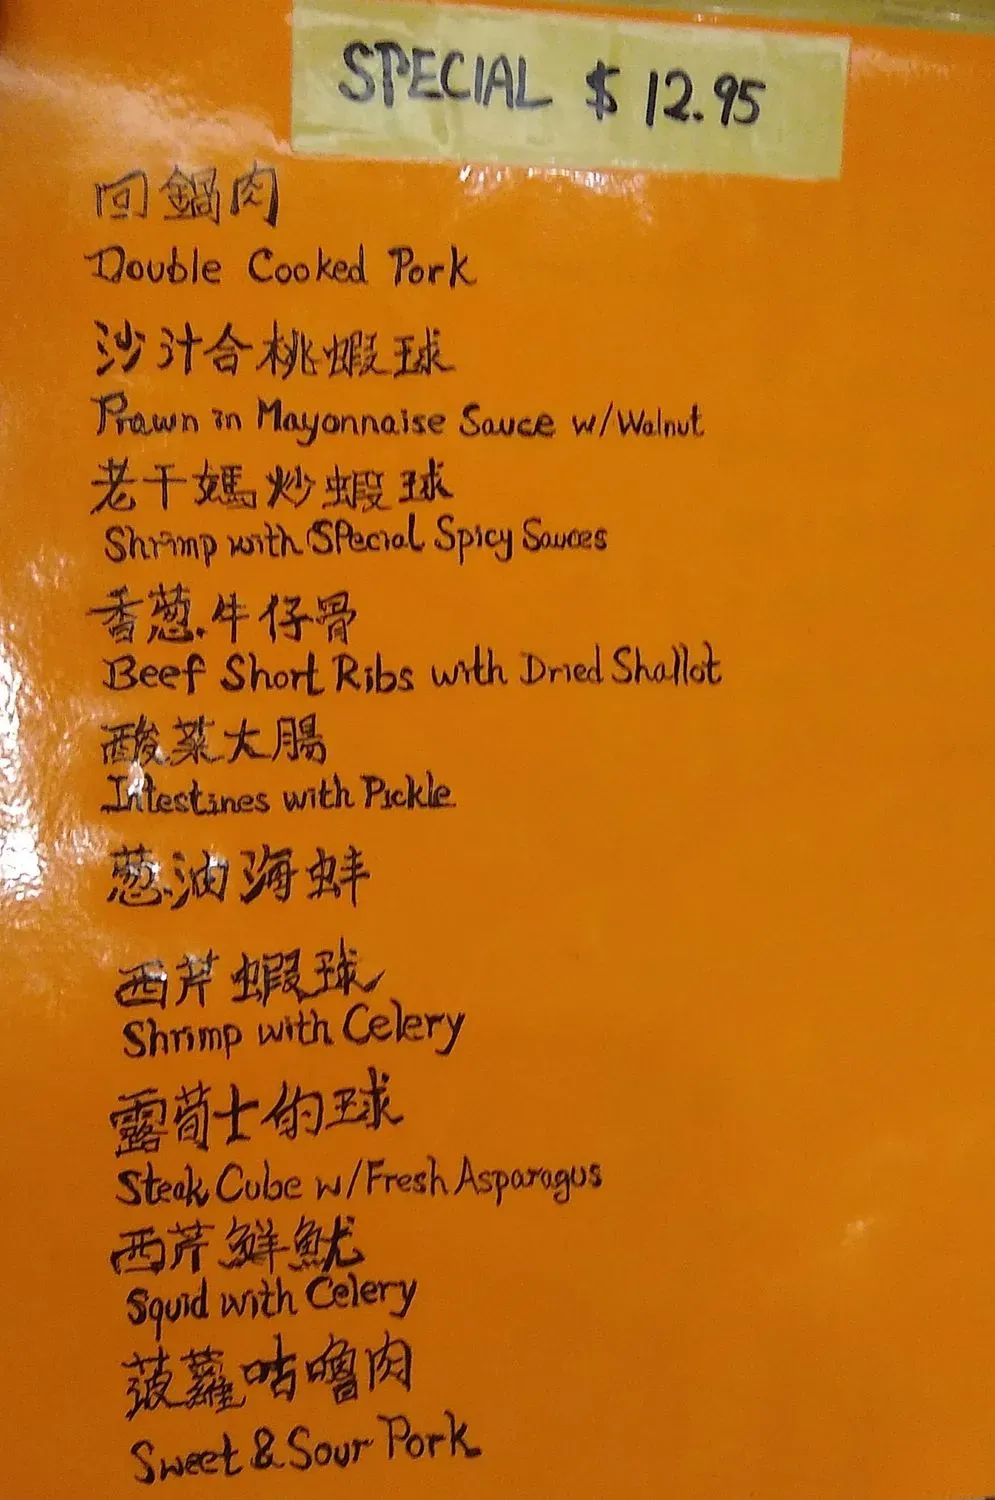 SPECIAL $12.95
回鍋肉
Double Cooked Pork
沙汁合桃蝦球
Prawn in Mayonnaise Sauce w/Walnut
老干媽炒蝦球
Shrimp with Special Spicy Sauces
香葱牛仔骨
Beef Short Ribs with Dried Shallot
酸菜大腸
Intestines with Pickle
葱油海蚌
西芹蝦球
Shrimp with Celery
露荀士的球
Steak Cube w/Fresh Asparagus
西芹鮮魷
Squid with Celery
菠蘿咕嚕肉
Sweet & Sour Pork